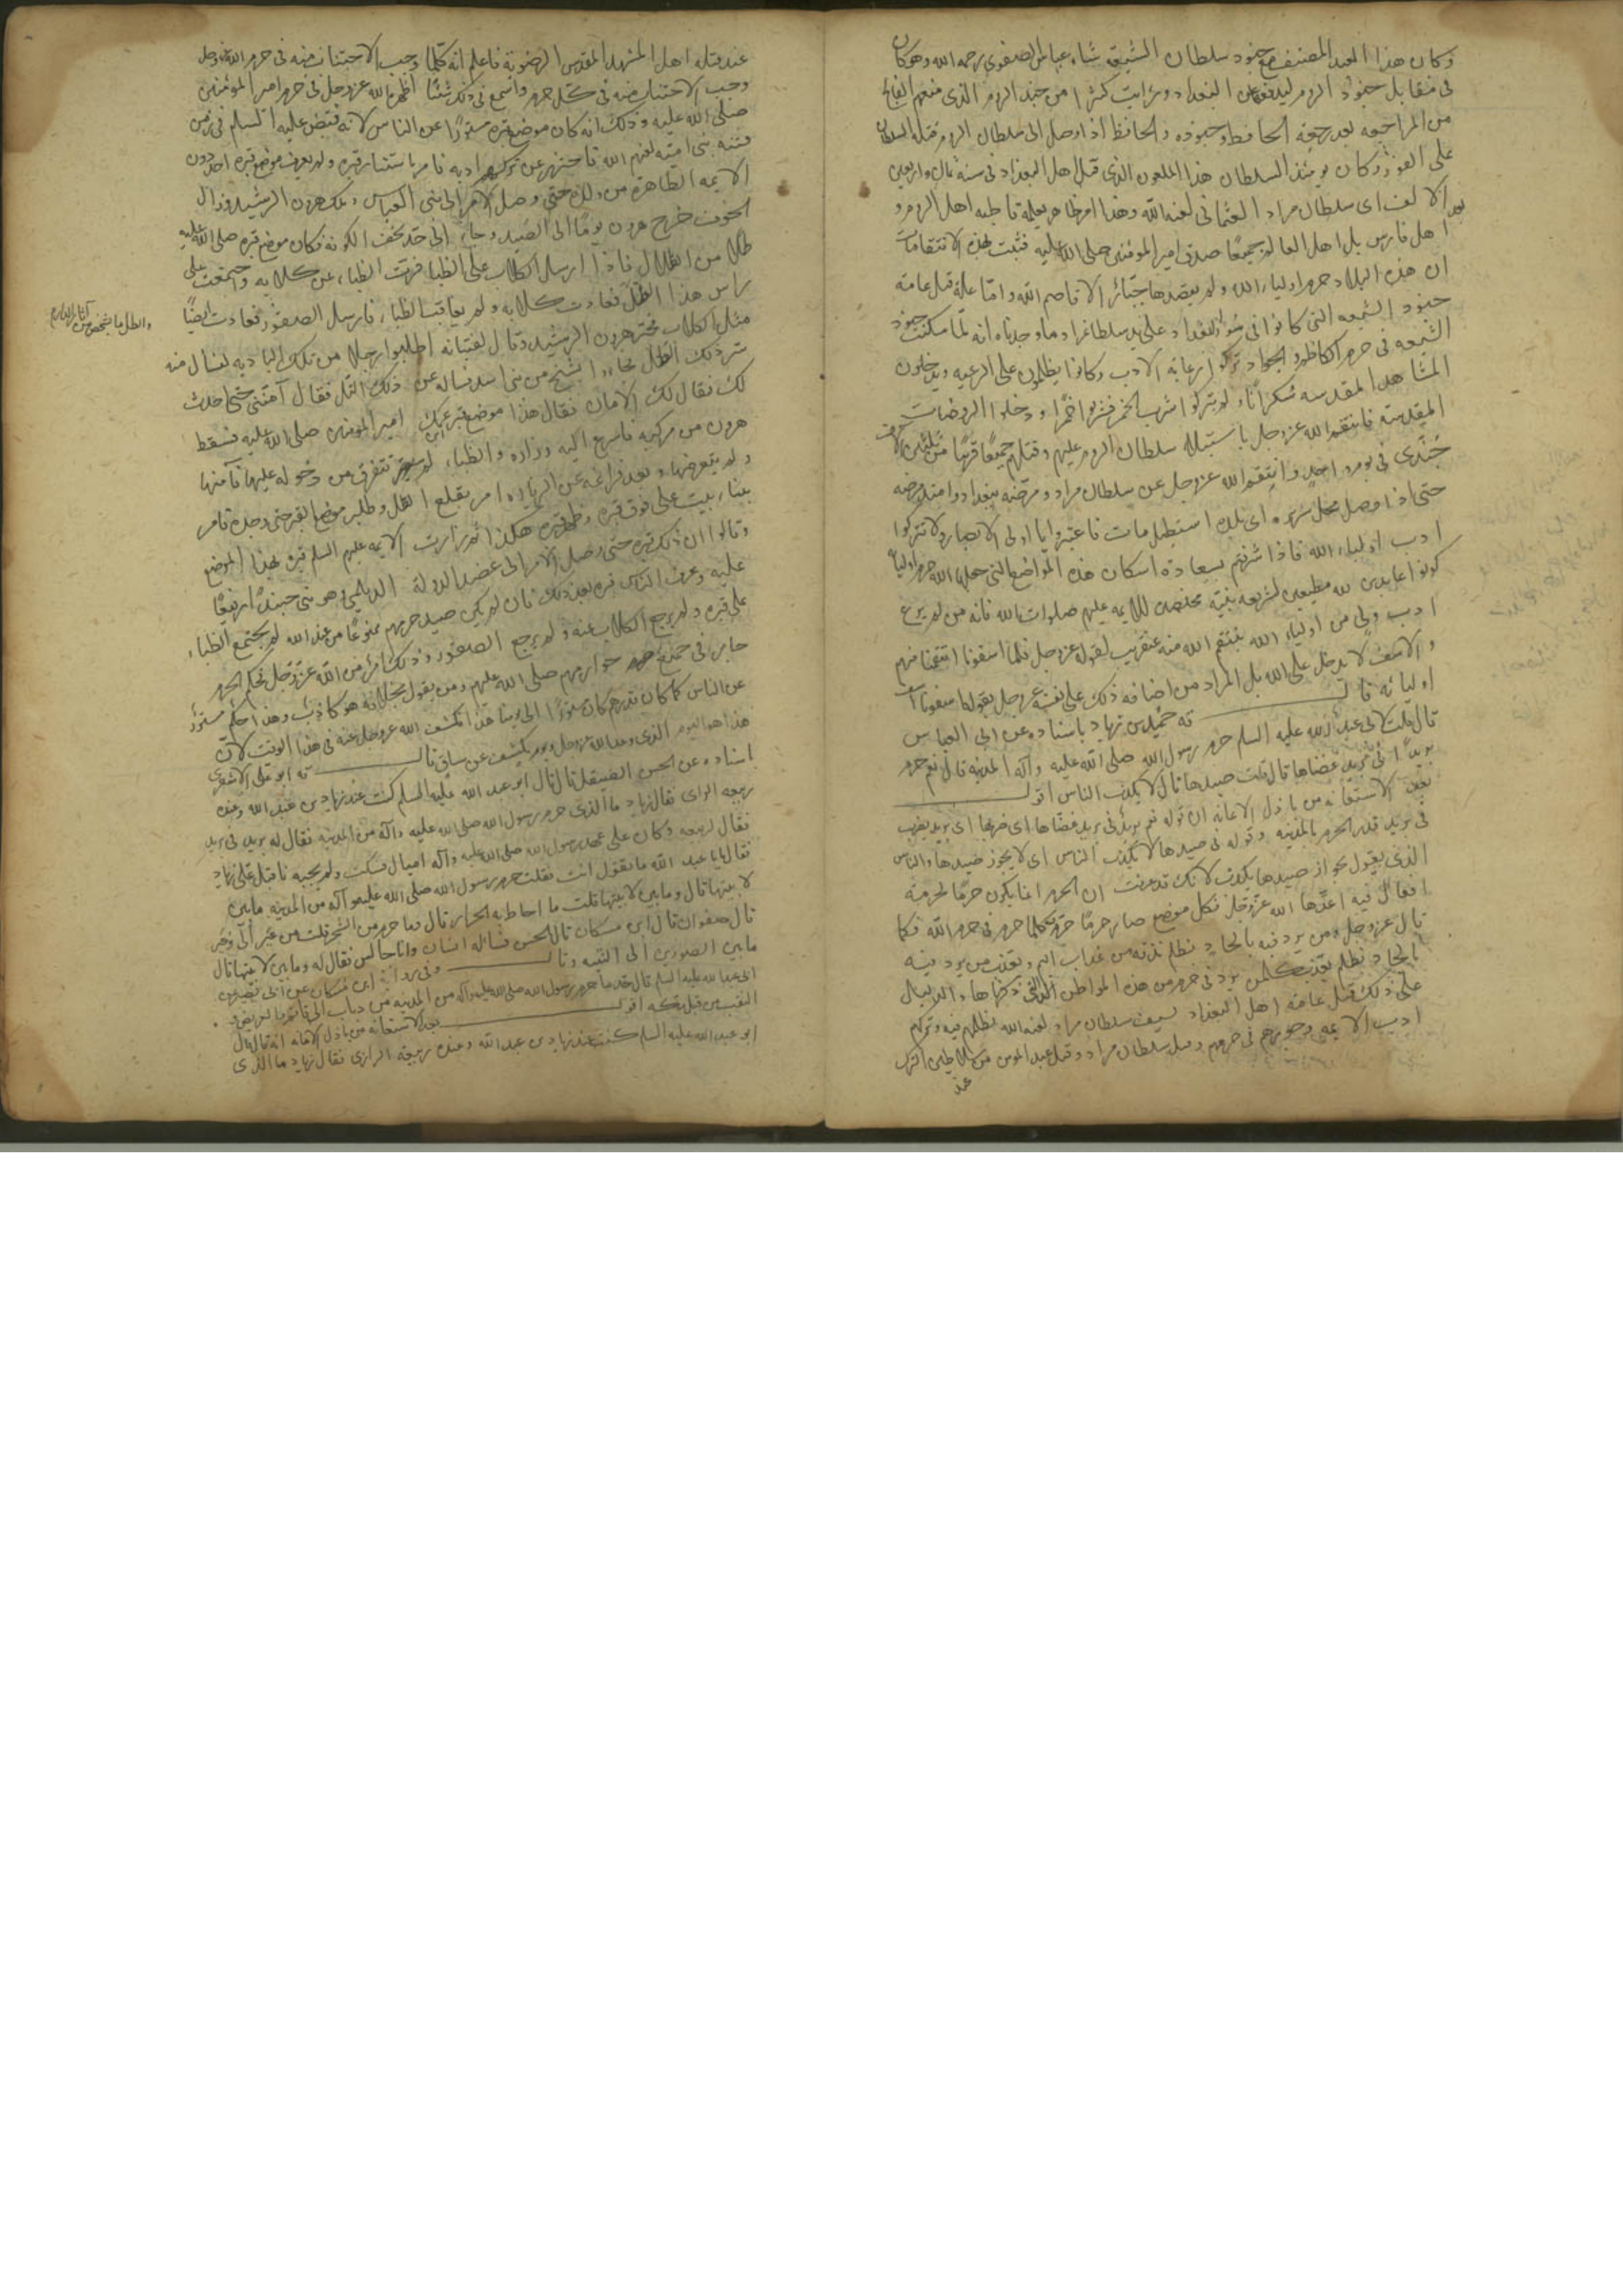 وكان هذا العبد المصنف مع جنود سلطان الشيعة شاه عباس الصفوي رحمه الله وهو كان
فى مقابل جنود الروم ليدفعهم عن البغداد ورايت كثيرا من جند الروم الذى منعهم الفالج
من المراجعه بعد رجعة الحافظ وجنوده والحافظ اذا وصل الى سلطان الروم قتله السلطان
على الفور وكان يومئذ السلطان هذا الملعون الذى قتل اهل البغداد فى سنة ثمان واربعين
بعد الالف اى سلطان مراد العثمانى لعنه الله وهذا امر ظاهر يعلمه قاطبه اهل الروم و
اهل فارس بل اهل العالم جميعا صدق امير المؤمنين صلى الله عليه فثبت بهذه الانتقامات
ان هذه البلاد حرم اولياء الله ولم يقصدها جبّار الا قاصم الله واما علة قتل عامة
جنود الشيعه التى كانوا فى البغداد على يد سلطان مراد ما وجدناه انه لمّا سكنت جنود
الشيعه فى حرم الكاظم والجواد تركوا رعاية الادب وكانوا يظلمون على الرعيه ويدخلون
المشاهد المقدسه سُكرانا ولم يتركوا شرب الخمر فشربوا خمرا ودخلوا الروضات
المقدسة فانتقم الله عزوجل باستيلاء سلطان الروم عليهم وقتلهم جميعا قريبا من ثلثين الاف
جُندى فى يوم واحد وانتقم الله عزوجل عن سلطان مراد ومرضه ببغداد وامتد مرضه
حتى اذا وصل محل سريره اى بلد استنبل مات فاعتبروا يا اولى الابصار ولا تتركوا
ادب اولياء الله فاذا شرفتم بسعادة اسكان هذه المواضع التى جعلها الله حرم اوليائه
كونوا عابدين لله مطيعين لشريعه نبيّه مخلصين للائمه عليهم صلوات الله فانه من لم يرع
ادب ولىّ من اولياء الله ينتقم الله منه عنقريب لقوله عزوجل فلما اسفونا انتقمنا منهم
والاسف لا يدخل على الله بل المراد من اضافه ذلك على نفسه عزوجل بقوله اسفونا اسف
اوليائه قال ته حُميد بن زياد باسناده عن ابى العباس
قال قلت لابى عبد الله عليه السلم حرم رسول الله صلى الله عليه وآله المدينه قال نعم حرم
بريدا فى بريد غضاها قال قلت صيدها قال لا يكذب الناس اقول
بعد الاستعانه من باذل الاعانه ان قوله نعم بريد فى بريد غضاها اى
فى بريد قدر الحرم بالمدينه وقوله فى صيدها لا يكذب الناس اى لا يجوز صيدها والناس
الذى يقول بجواز صيدها يكذب لانك قد عرفت ان الحرم انما يكون حرمًا لحرمة
افعال فيه اعدّها الله عزّوجل فكل موضع صار حرمًا حرّم كلما حرم فى حرم الله فكما
قال عزوجل ومن يرد فيه بالحاد بظلم نذقه من عذاب اليم ويعذب من يرد فيه
بالحاد بظلم يعذب كلمن يرد فى حرم من هذه المواطن التى ذكرناها والدليل
على ذلك قتل عامة اهل البغداد بسيف سلطان مراد لعنه الله بظلمهم فيه وتركهم
ادب الائمه وجورهم فى حرمهم وقتل سلطان مراد وقتل عبد المومن من سلاطين الترك
عند
عند قتله اهل المشهد المقدس الرضويه فاعلم انه كلّما وجب الاجتناب منه فى حرم الله عزوجل
وجب الاجتناب منه فى كل حرم واسمع فى ذلك شيئًا اظهره الله عزوجل فى حرم امير المؤمنين
صلى الله عليه وذلك انه كان موضع قبره مستورًا عن الناس لانه قبض عليه السلم فى زمن
فتنة بنى اميّه لعنهم الله فامر باستتار قبره ولم يعرف موضع قبره احد دون
الائمه الطاهرة من ولده حتى وصل الامر الى بنى العباس وملك هرون الرشيد وزال
الخوف خرج هرون يومًا الى الصيد وجاء الى حد نجف الكوفة فكان موضع قبره صلى الله عليه
طللا من الطلال فاذا ارسل الكلاب على الظبا فرّت الظباء عن كلابه واجتمعت على
راس هذا الطلل فعادت كلابه ولم يعاقب الظباء فارسل الصقور فعادت ايضًا
والطلل ما شخص من آثار الدار م
مثل الكلاب فتحيّر هرون الرشيد وقال لفتيانه اطلبوا رجلا من تلك الباديه لنسال منه
سر ذلك الطلل فجاءوا بشيخ من بنى اسد فساله عن ذلك التل فقال آمنّى حتى احدث
لك فقال لك الامان فقال هذا موضع قبر ابن عمك امير المومنين صلى الله عليه فسقط
هرون من مركبه فاسرع اليه وزاره والظباء لم تتفرق من دخوله عليها فآمنها
ولم يتعرضها وبعد فراغه عن الزياره امر بقلع الطلل وطلب موضع القبر حتى وجده فامر
ببناء بيت على فوق قبره وظهر قبره هكذا ثم زارت الائمه عليهم السلم قبره بهذا الموضع
وقالوا ان ذلك قبره حتى وصل الامر الى عضد الدولة الديلمى وهو بنى جنبذًا رفيعًا
عليه وعرف الناس قبره بعد ذلك فان لم يكن صيد حرمهم ممنوعًا من عند الله لم يجتمع الظباء
على قبره ولم يرجع الكلاب عنه ولم يرجع الصقور وذلك امر من الله عزّوجل فحكم الحرم
جار فى جميع حرمهم صلى الله عليهم ومن يقول بخلافه هو كاذب وهذا حكم مستور
عن الناس كما كان قبرهم كان مستورًا الى يومنا هذا كشف الله عزوجل عنه فى هذا الوقت لان
هذا هو اليوم الذى وعد الله عزوجل ويوم يكشف عن ساق قال ته ابو على الاشعرى
باسناده عن الحسن الصيقل قال قال ابو عبد الله عليه السلم كنت عند زياد بن عبد الله وعنده
ربيعه الراى فقال زياد ما الذى حرم رسول الله صلى الله عليه وآله من المدينه فقال له بريد فى بريد
فقال لربيعه وكان على عهد رسول الله صلى الله عليه وآله اميال فسكت ولم يجبه فاقبل علىّ زياد
فقال يابا عبد الله ما تقول انت فقلت حرم رسول الله صلى الله عليه وآله من المدينه ما بين
لابتيها قال وما بين لابتيها قلت ما احاط به الحرار قال وما حرم من الشجر قلت من عير الى وعير
قال صفوان قال ابن مسكان قال الحسن فساله انسان وانا جالس فقال له وما بين لابتيها قال
ما بين الصورين الى الثنيه وقال وفى رواية ابن مسكان عن ابى بصير عن
ابى عبد الله عليه السلم قال حد ما حرم رسول الله صلى الله عليه وآله من المدينه من ذباب الى واقم والعريض و
النقب من قبل مكه اقول بعد الاستعانه من باذل الاعانه انه قال قال
ابو عبد الله عليه السلم كنت عند زياد بن عبد الله وعنده ربيعة الرازى فقال زياد ما الذى